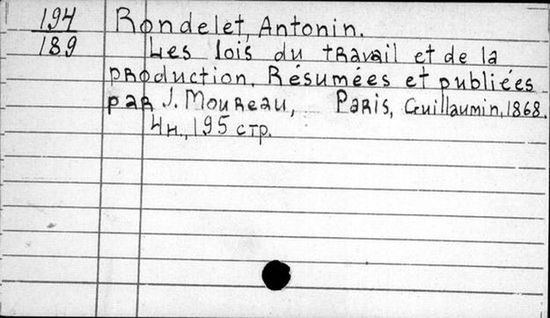 194 Rondelet, Antonin.
189 Les lois du travail et de la
production. Résumées et publiées
par J. Moureau, Paris, Guillaumin, 1868.
4н., 195 стр.